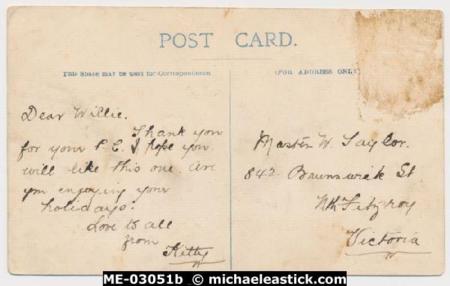 POST CARD.
This Space may be used for Correspondence
(FOR ADDRESS ONLY
Dear Willie.
Thank you
for your P.C. I hope you
will like this one. are
you enjoying your
holidays?
Love to all
from
Kitty
Master W. Taylor.
842 Brunswick St
Nth Fitzroy
Victoria
ME-03051b © michaeleastick.com